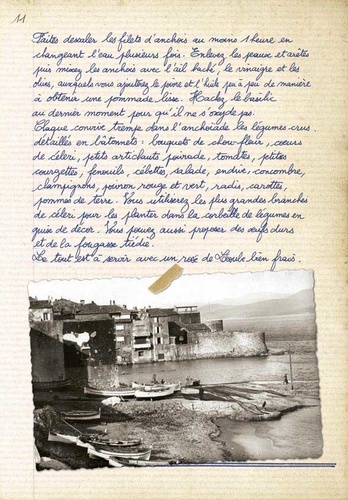 11.
Faites dessaler les filets d'anchois au moins 1 heure en
changeant l'eau plusieurs fois. Enlevez les peaux et arêtes
puis mixez les anchois avec l'ail haché, le vinaigre et les
, auxquels vous ajouterez le poivre et l'huile peu à peu de manière
à obtenir une pommade lisse. Hachez le basilic
au dernier moment pour qu'il ne s'oxyde pas.
Chaque convive trempe dans l'anchoïade les légumes crus
détaillés en bâtonnets : bouquets de chou-fleur, cœurs
de céleri, petits artichauts poivrade, tomates, petites
courgettes, fenouils, cébettes, salade, endive, concombre,
champignons, poivron rouge et vert, radis, carottes,
pommes de terre. Vous utiliserez les plus grandes branches
de céleri pour les planter dans la corbeille de légumes en
guise de décor. Vous pouvez aussi proposer des œufs durs
et de la fougasse tiédie.
Le tout est à servir avec un rosé de bien frais.